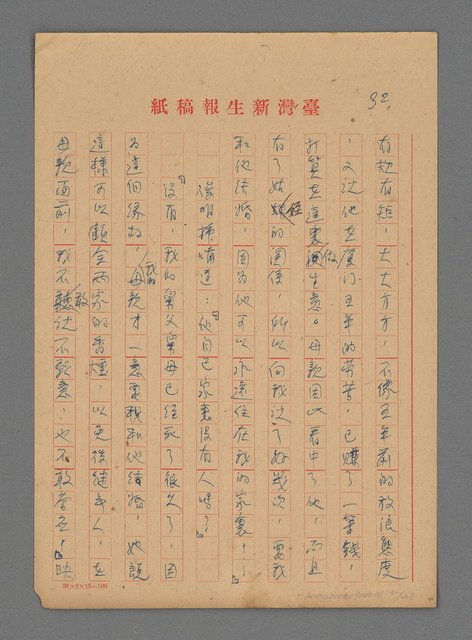 紙稿報生新灣臺
32.
有規有矩，大大方方，不像五年前的放浪態度
，又說他在廈門五年的勞苦，已賺了一筆錢，
打算在這裏做生意。母親因此看中了他，而且
有了姑姪的關係，所以向我說了好幾次，要我
和他結婚，因為他可以永遠住在我的家裏……」
俊明插嘴道：「他自己家裏沒有人嗎？」
「沒有，我的舅父舅母已經死了很久了，因
為這個緣故，我的母親才一意要我和他結婚，她說
這樣可以顧全兩家的香煙，以免後繼無人，在
母親面前，我不敢說不願意，也不敢答應。」映
36×2×15=100